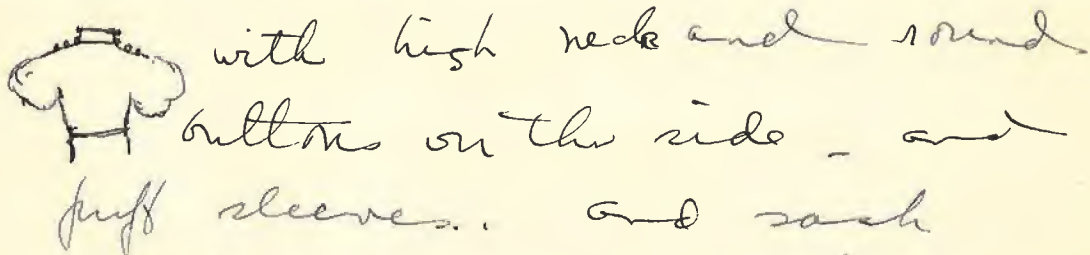 with high neck and round
buttons on the side - and
puff sleeves. and sash